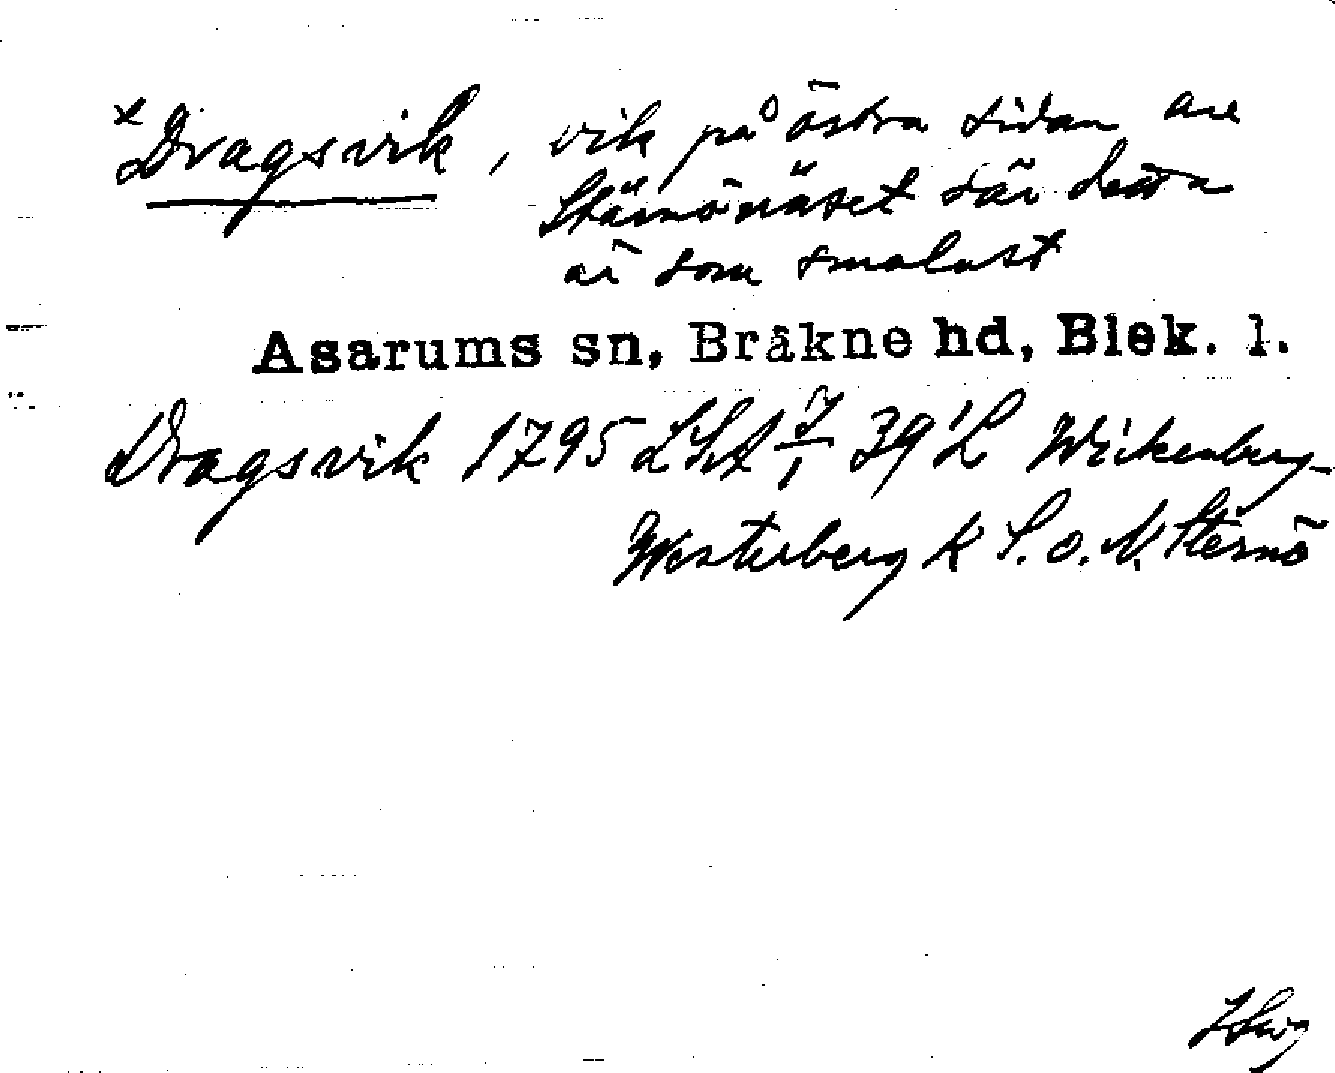 *Dragsvik, vik på östra sidan av
Stärnönäset där detta
är som smalast
Asarums sn, Bräkne hd, Blek. l.
Dragsvik 1795 LSA 7/1 39'L Wickenberg-
Westerberg k S. o. N. Sternö